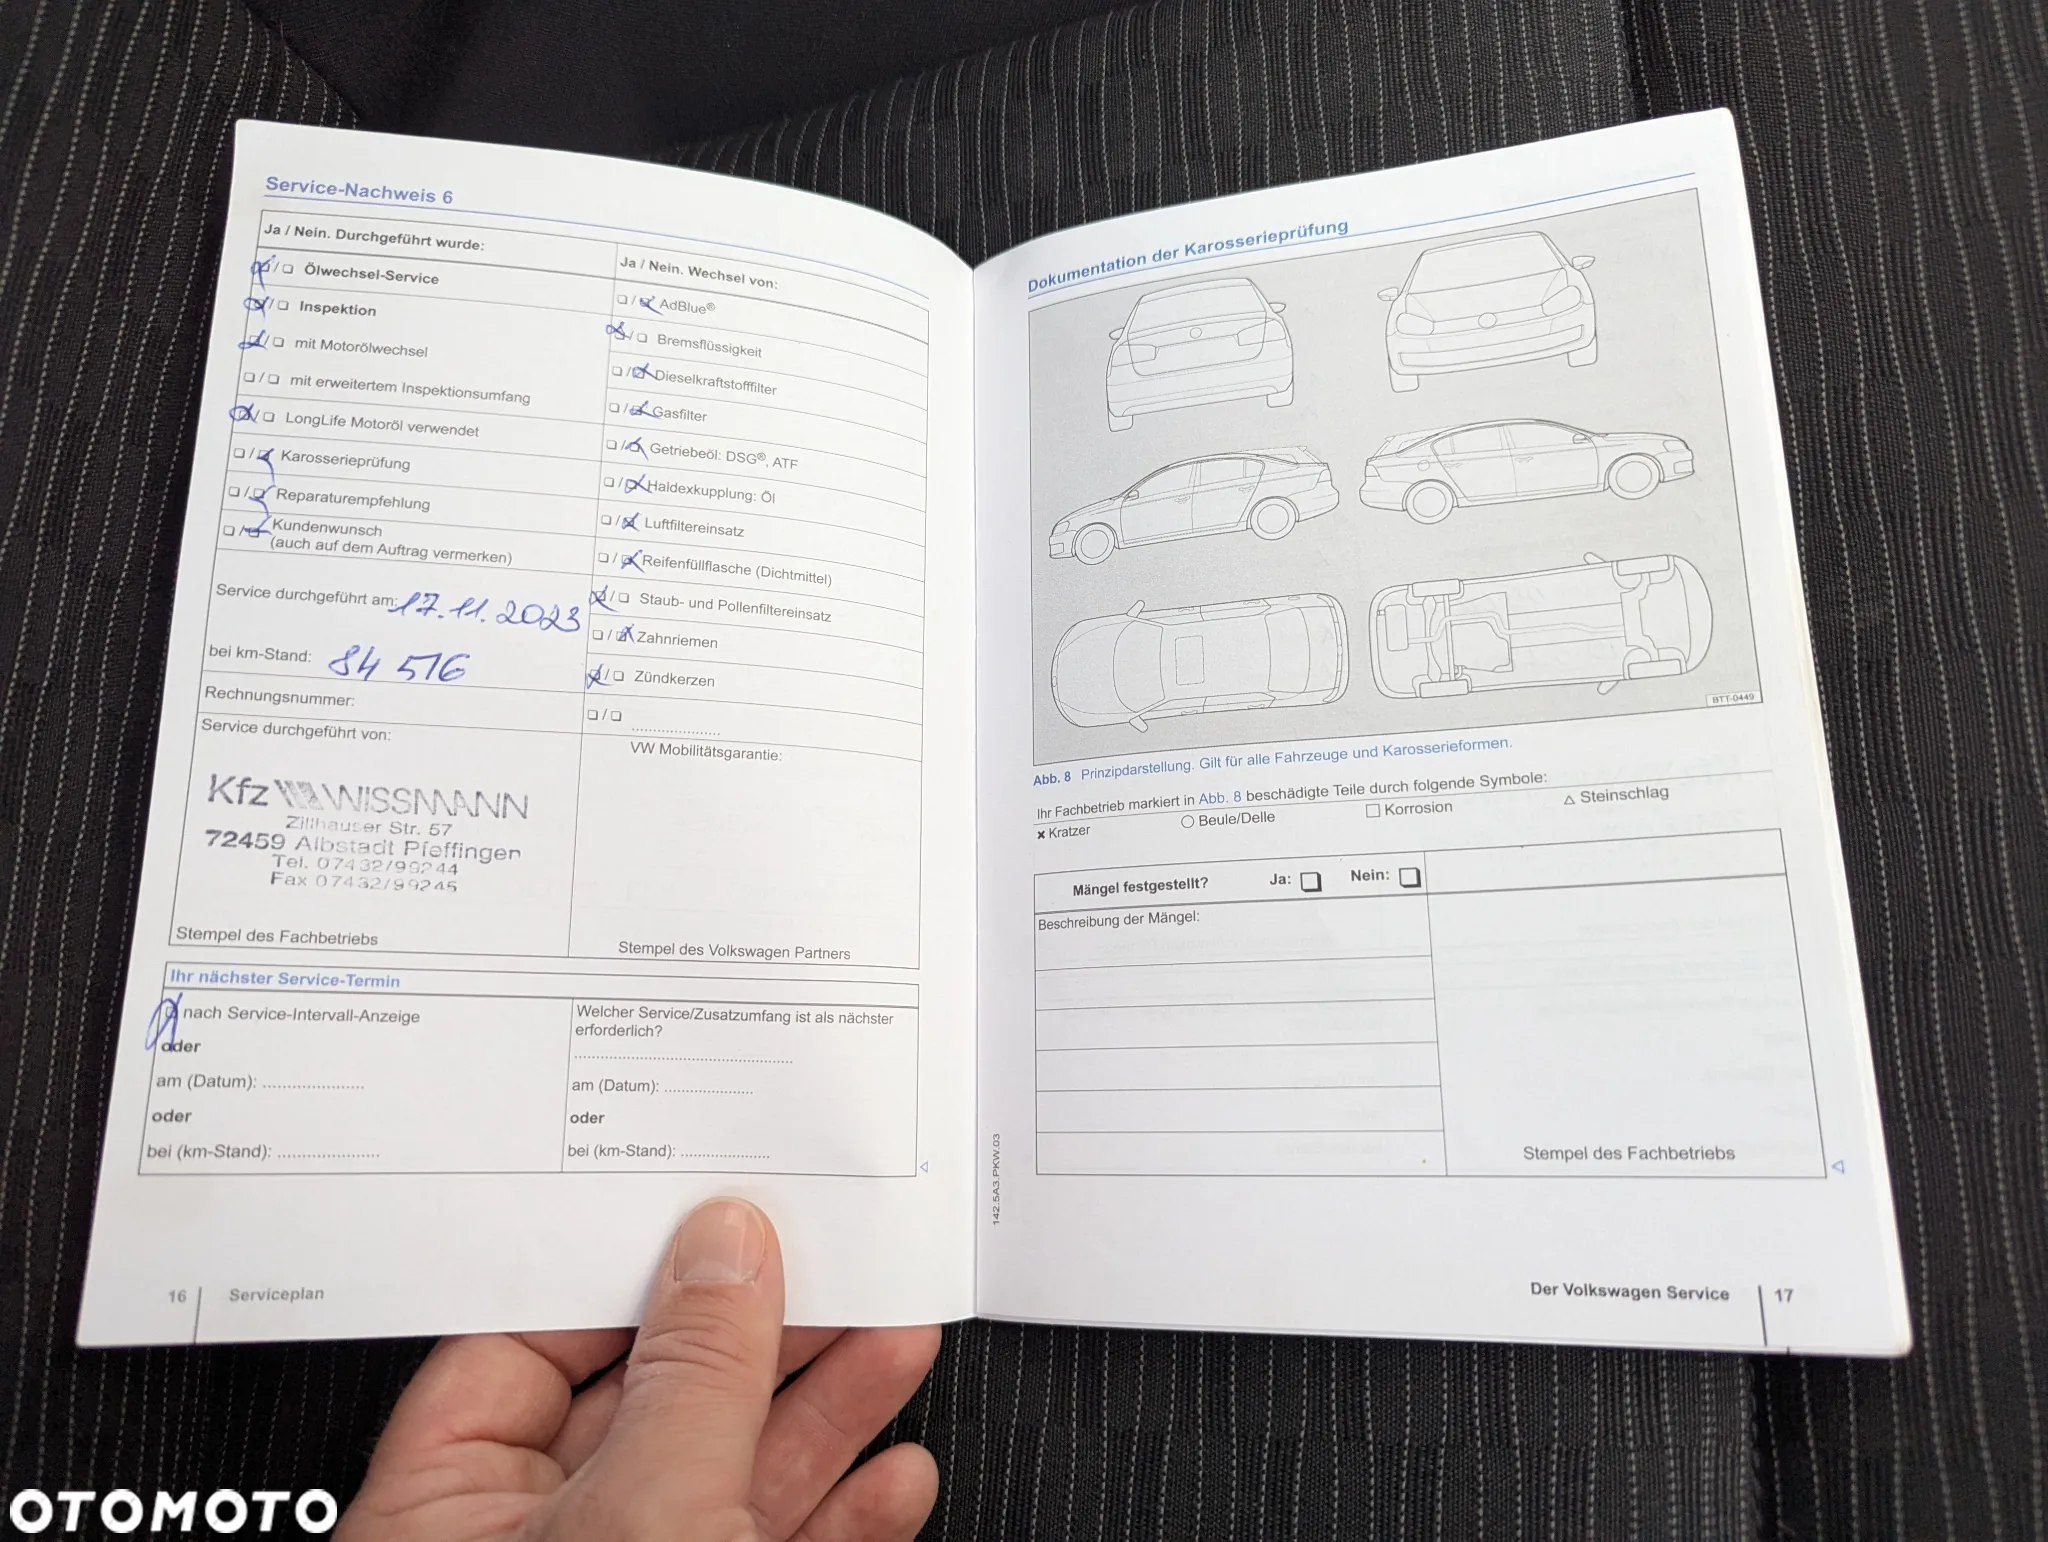 Service-Nachweis 6
Ja / Nein. Durchgeführt wurde:
Ölwechsel-Service
Inspektion
mit Motorölwechsel
mit erweitertem Inspektionsumfang
LongLife Motoröl verwendet
Karosserieprüfung
Reparaturempfehlung
Kundenwunsch
(auch auf dem Auftrag vermerken)
Service durchgeführt am: 17.11.2023
bei km-Stand: 84 516
Rechnungsnummer:
Service durchgeführt von:
Kfz WISSMANN
Zillhauser Str. 57
72459 Albstadt Pfeffingen
Tel. 07432/99244
Fax 07432/99245
Stempel des Fachbetriebs
Ja / Nein. Wechsel von:
AdBlue®
Bremsflüssigkeit
Dieselkraftstofffilter
Gasfilter
Getriebeöl: DSG®, ATF
Haldexkupplung: Öl
Luftfiltereinsatz
Reifenfüllflasche (Dichtmittel)
Staub- und Pollenfiltereinsatz
Zahnriemen
Zündkerzen
VW Mobilitätsgarantie:
Stempel des Volkswagen Partners
Ihr nächster Service-Termin
nach Service-Intervall-Anzeige
oder
am (Datum): ......................
oder
bei (km-Stand): ......................
Welcher Service/Zusatzumfang ist als nächster
erforderlich?
am (Datum): ...................
oder
bei (km-Stand): ...................
16 Serviceplan
Dokumentation der Karosserieprüfung
BTT-0449
Abb. 8 Prinzipdarstellung. Gilt für alle Fahrzeuge und Karosserieformen.
Ihr Fachbetrieb markiert in Abb. 8 beschädigte Teile durch folgende Symbole:
Kratzer Beule/Delle Korrosion Steinschlag
Mängel festgestellt? Ja: Nein:
Beschreibung der Mängel:
Stempel des Fachbetriebs
142.5A3.PKW.03
Der Volkswagen Service 17
OTOMOTO